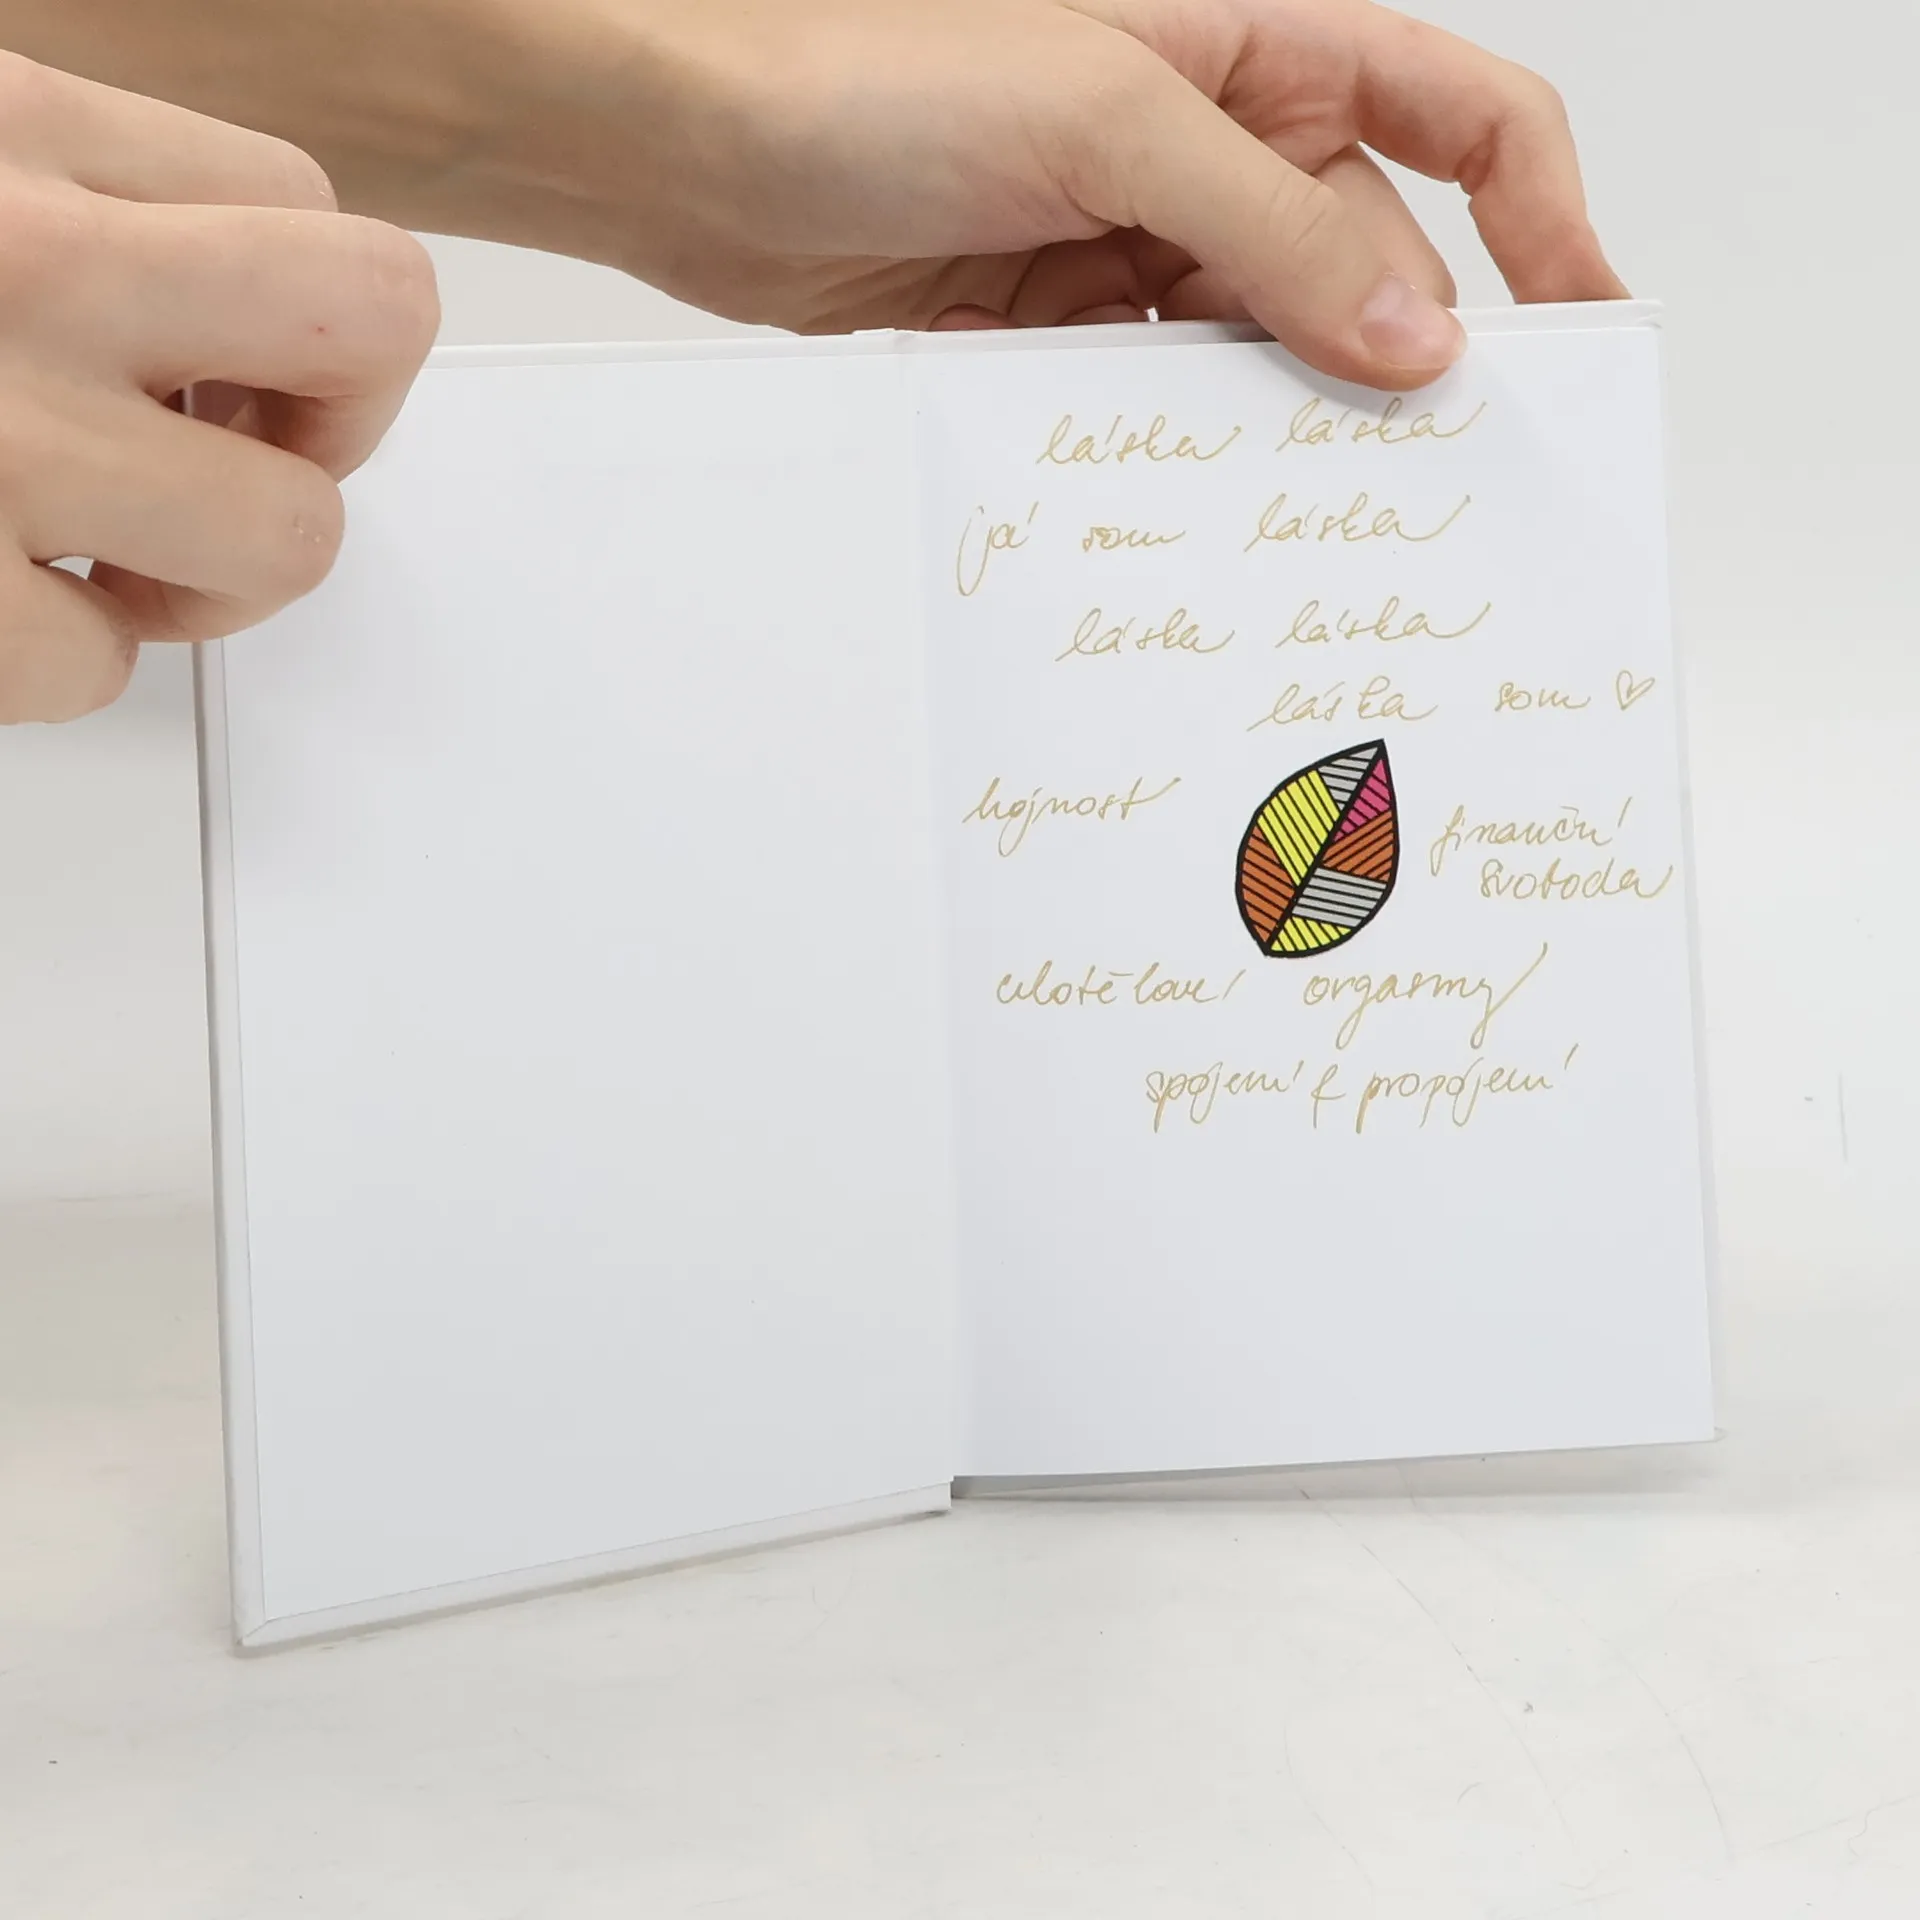 láska láska
já som láska
láska láska
láska som ♡
hojnost
finanční
svoboda
celotělové orgasmy
spojení & propojení